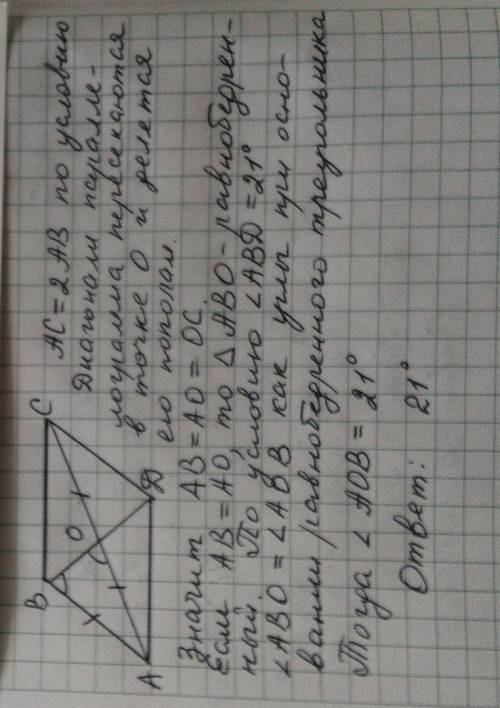 B C
O
A D
AC = 2AB по условию
Диагонали паралле-
лограмма пересекаются
в точке O и делятся
ею пополам.
Значит AB = AO = OC.
Если AB = AO, то △ ABO - равнобедрен-
ный. По условию ∠ABD = 21°
∠ABO = ∠ABB как углы при осно-
вании равнобедренного треугольника
Тогда ∠AOB = 21°
Ответ: 21°